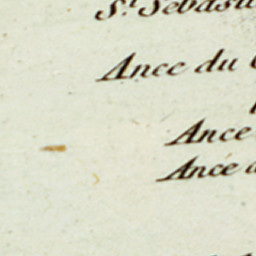 St. Sebasti
Ance du
Ance
Ance